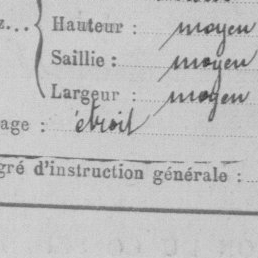 z... Hauteur : moyen
Saillie : moyen
Largeur : moyen
age : étroit
gré d'instruction générale :